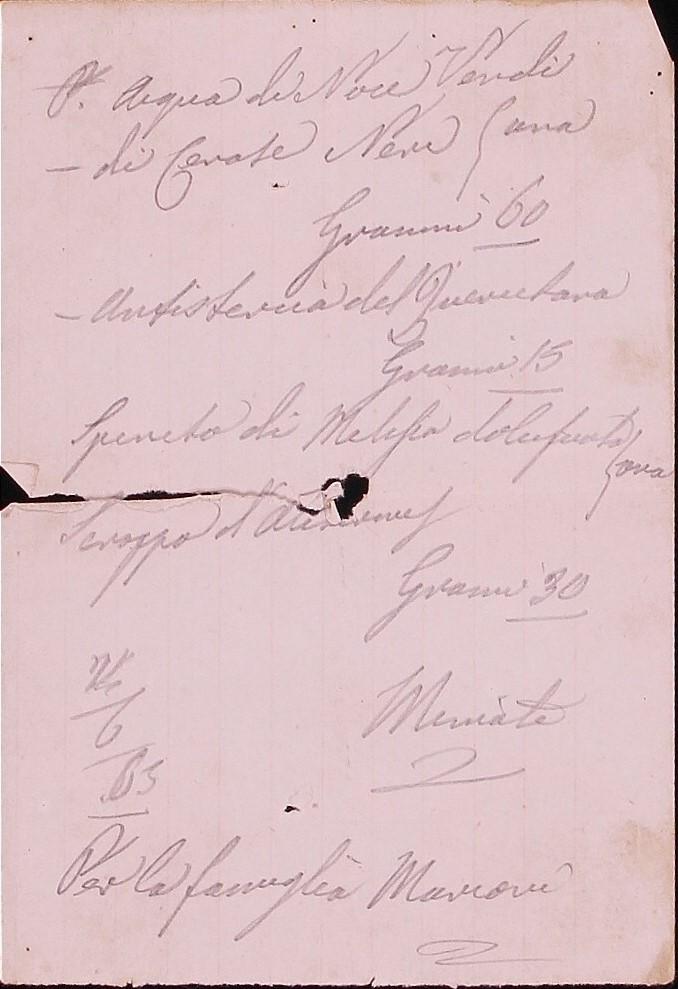 P. Acqua di Noce Verdi
- di Cerase Nere } ana
Grammi 60
- Antisterica del Quercetano
Grammi 15
Spirito di Melissa
ana
Siroppo d'
Grammi 30
6
Mesciate
Per la famiglia Marconi